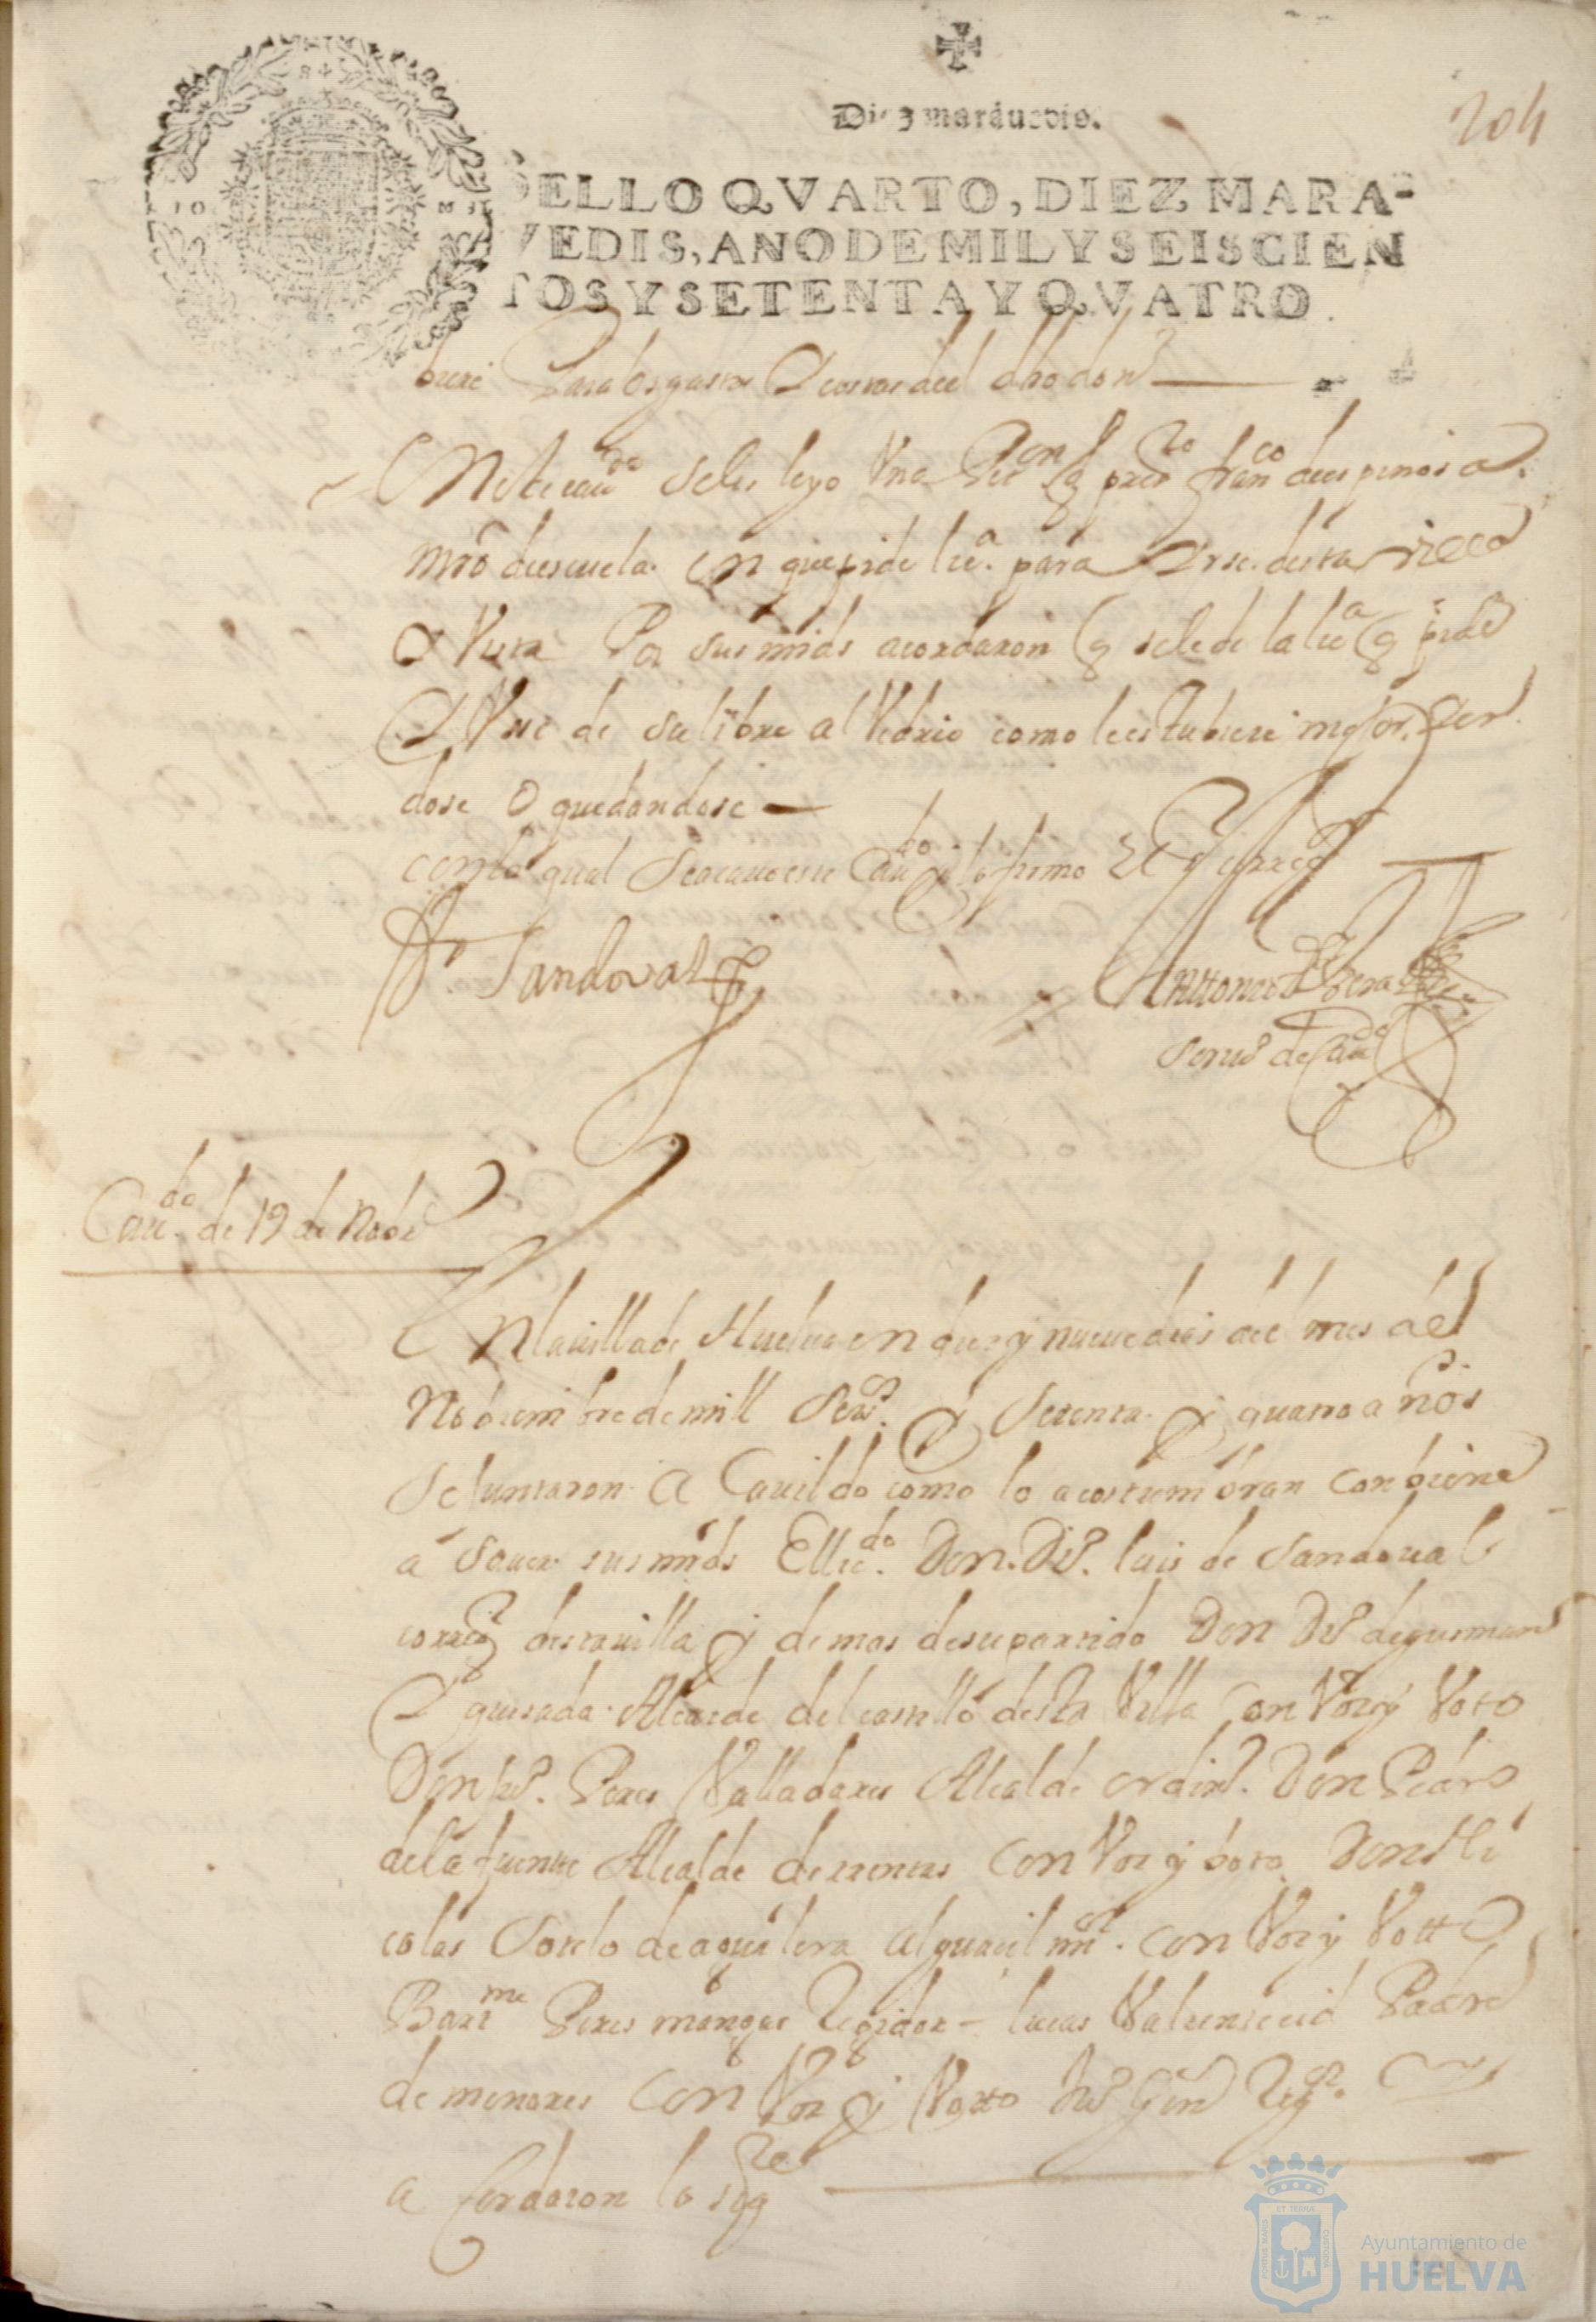 Diez marauedis.
204
SELLO QVARTO, DIEZ MARA-
VEDIS, ANO DE MIL Y SEISCIEN
TOS Y SETENTA Y QVATRO.
para los gastos del dho don
En este cauᵈᵒ se les leyo Una petⁿ q̃ pressᵗᵒ franᶜᵒ de espinosa
mr̃o de escuela en que pide licᵃ para Yrse desta Villa
Y Vista Por sus mr̃ds acordaron q̃ se le de la licᵃ q̃ pide
Y Vse de su libre alVedrio como le estubiere mejor Yen
dose O quedandose —
con lo qual se acauo este Cauᵈᵒ y lo firmo el sʳ corregᵒʳ —
Sandoval
Antonio de Vera
scriuº de Cauᵈᵒ
Cauᵈᵒ de 19 de Nobʳᵉ
En la villa de Huelua en diez y nueue dias del mes de
Nobiembre de mill seisº y setenta y quatro años
se Juntaron a Cauildo como lo acostumbran conbiene
a sauer sus mr̃ds El licᵈᵒ Don Diº luis de Sandoual
corregᵒʳ desta villa y demas de su partido Don Diº de gusman
Y quesada Alcaide del castillo desta Villa con Voz y Voto
Don Juº Peres Valladares Alcalde ordinº Don Pedro
de la fuente Alcalde de con Voz y boto Don Ni
colas Sotelo de aguilera alguacil mʳ con Voz y Votto
Barᵐᵉ Peres monge Regidor — lucas Valensuela Padre
de menores con Voz y Votto Juº Regᵒʳ
acordaron lo sigᵗᵉ
Ayuntamiento de
HUELVA